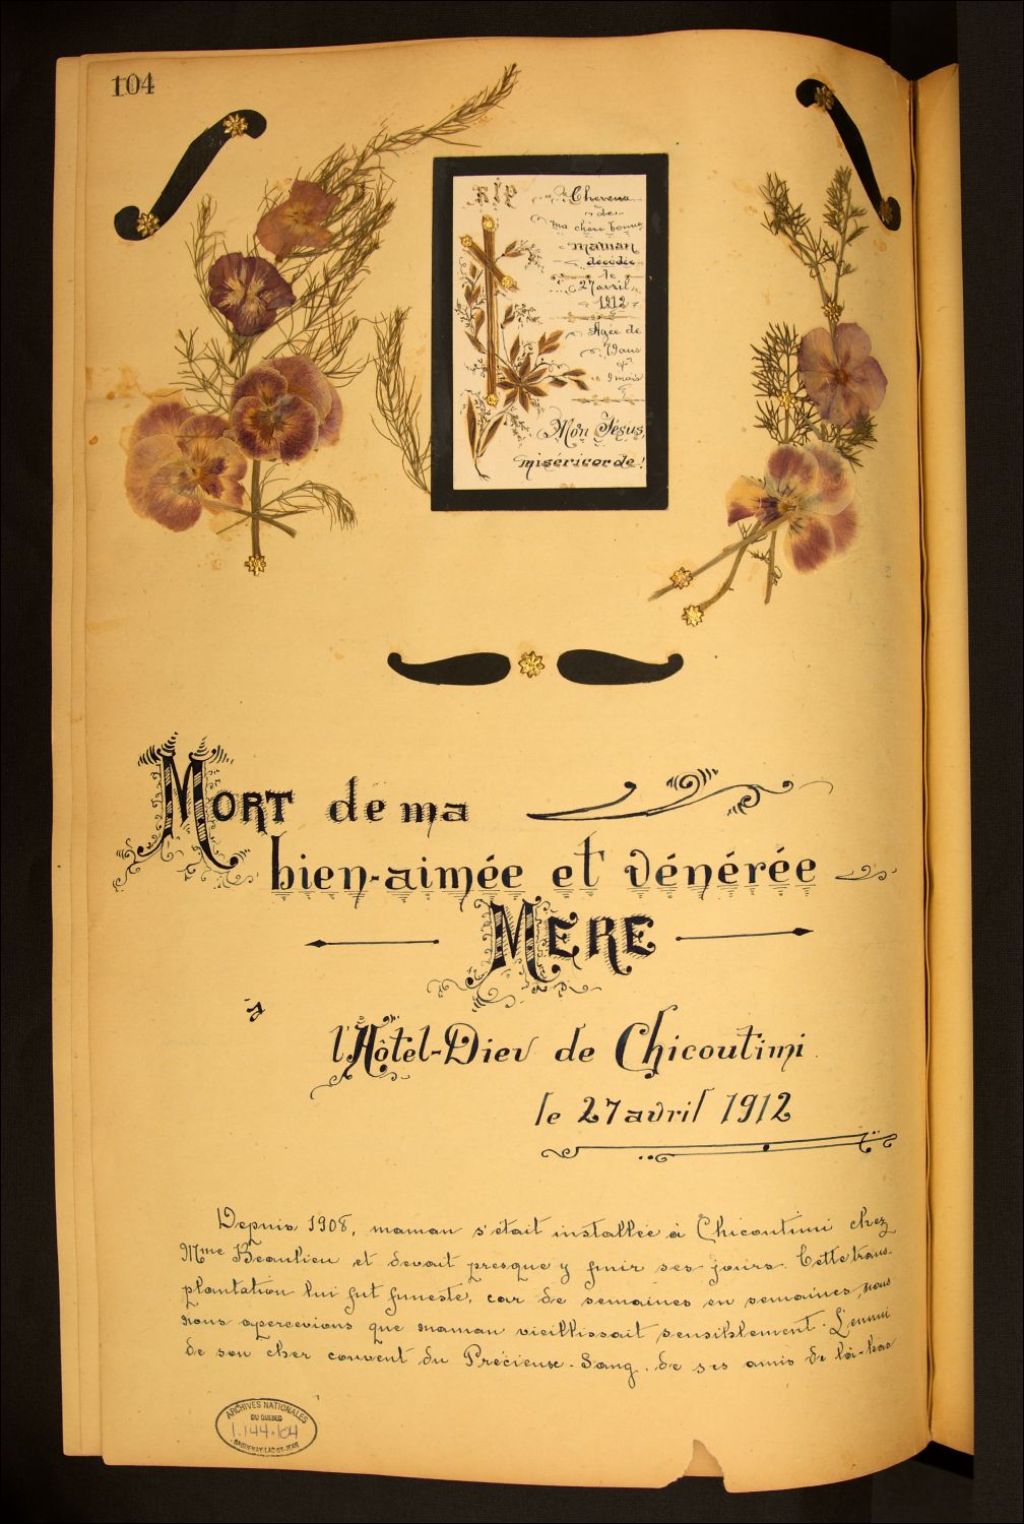 104
Cheveux
de
ma chère bonne
maman
décédée
le
27 avril
1912
Agée de
9 mois
Mon Jésus,
miséricorde!
Mort de ma
bien-aimée et vénérée
Mère
l'Hôtel-Dieu de Chicoutimi
le 27 avril 1912
Depuis 1908, maman s'était installée à Chicoutimi chez
Mme Beaulieu et devait presque y finir ses jours. Cette trans-
plantation lui fut funeste, car de semaines en semaines, nous
nous apercevions que maman vieillissait sensiblement. L'ennui
de son cher couvent du Précieux-Sang, de ses amis de là-bas
ARCHIVES NATIONALES
DU QUEBEC
1.144.104
SAGUENAY-LAC-ST-JEAN